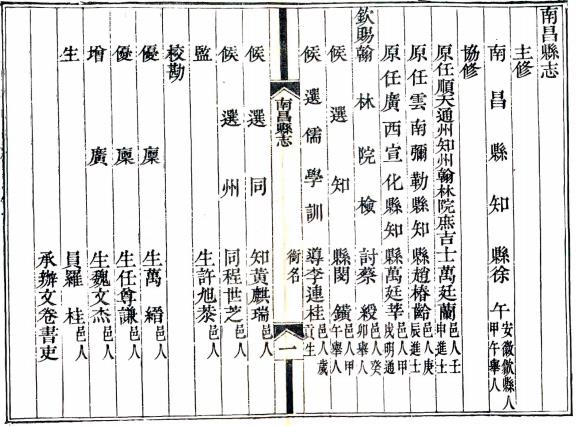 南昌縣志
主修
南昌縣知縣徐午安徽歙縣人甲午舉人
協修
原任順天通州知州翰林院庶吉士萬廷蘭邑人壬申進士
原任雲南彌勒縣知縣趙椿齡邑人庚辰進士
原任廣西宣化縣知縣萬廷莘邑人甲戌明通
欽賜翰林院檢討蔡綬邑人癸卯舉人
候選知縣閔鑌邑人甲午舉人
候選儒學訓導李連桂邑人歲貢生
南昌縣志
銜名
一
候選同知黃麒瑞邑人
候選州同程世芝邑人
監生許旭棻邑人
校勘
優廩生萬縉邑人
優廩生任尊謙邑人
增廣生魏文杰邑人
生員羅桂邑人
承辦文卷書吏